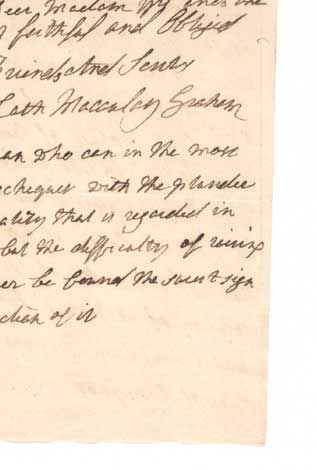 Deer Madam
faithful and Obligd
Friend And Servt
Cath Maccaulay Graham
an who can in the most
echequer with the plunder
ality that is regarded in
but the difficulty of
er be found the surest sign
ction of it